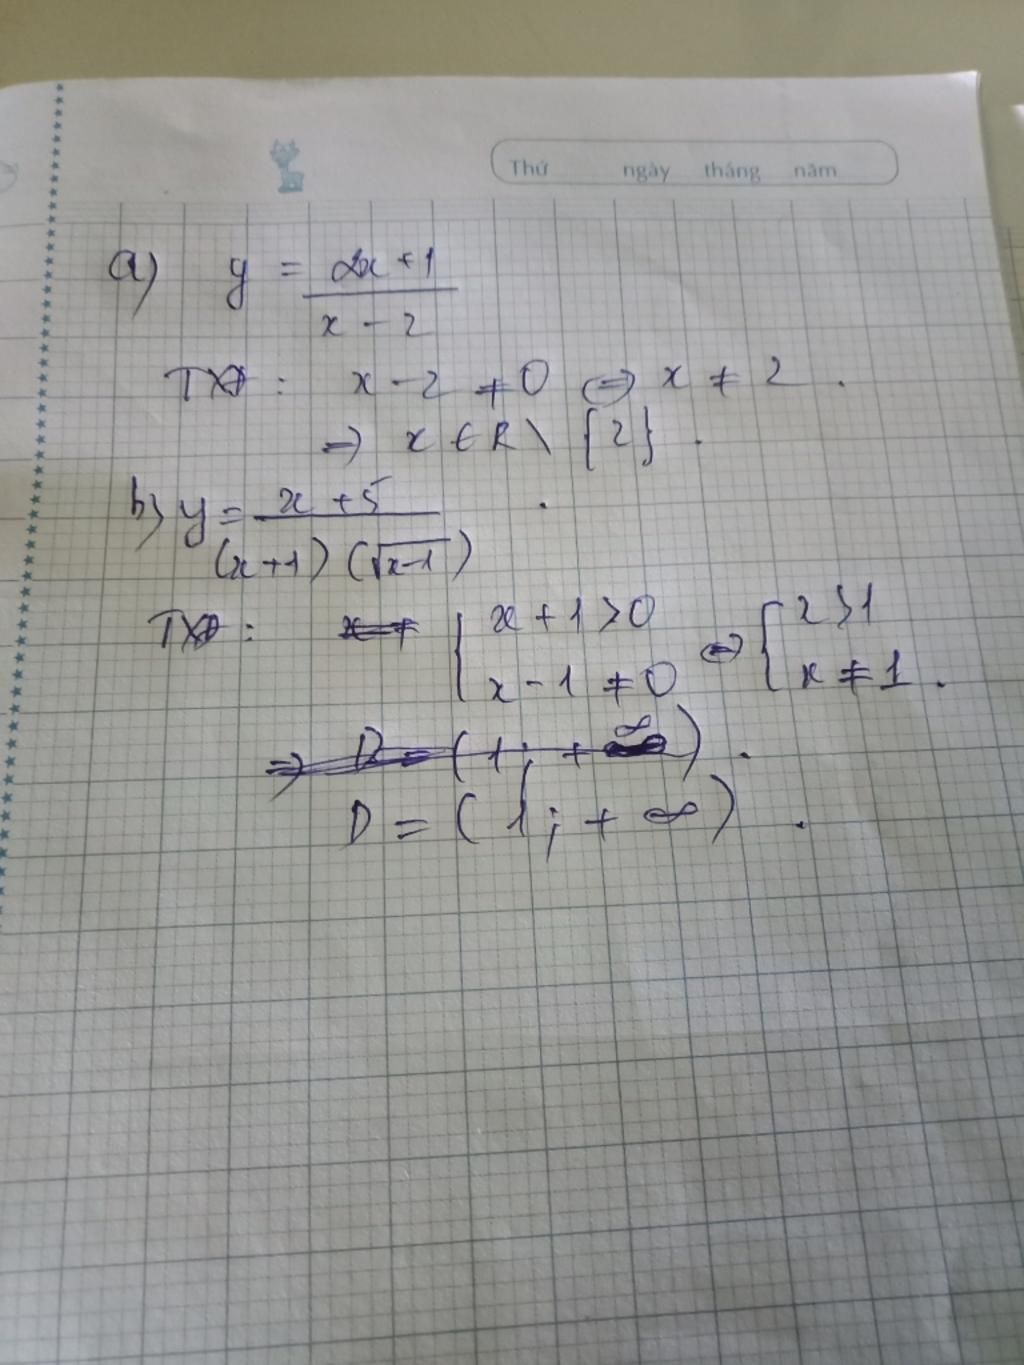 Thứ ngày tháng năm
a) y = \frac{2x+1}{x-2}
TXĐ : x - 2 ≠ 0 ⇔ x ≠ 2 .
⇒ x ∈ R \ {2} .
b) y = \frac{x+5}{(x+1)(\sqrt{x-1})}
TXĐ : { x + 1 > 0 ⇔ { x > 1
x - 1 ≠ 0 x ≠ 1 .
⇒ D = ( 1 ; + ∞ ) .
D = ( 1 ; + ∞ ) .